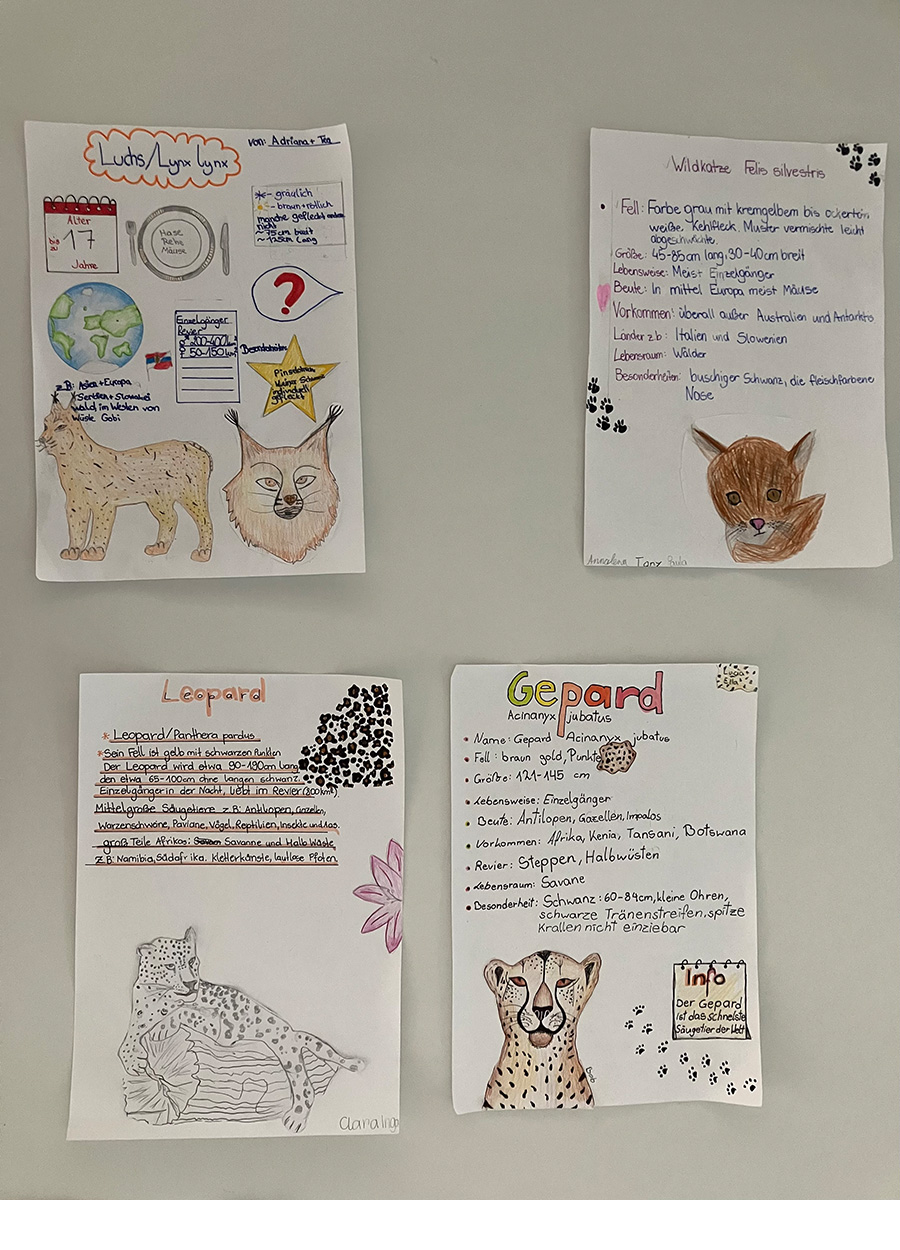 Luchs/Lynx lynx
von: Adriana + Tea
Alter
bis zu 17
Jahre
Hase
Rehe
Mäuse
- gräulich
- braun + rötlich
manche gefleckt andere
nicht
~ 75cm breit
~ 125cm lang
?
Einzelgänger
Revier
♂ 200-400km²
♀ 50-150km²
Besonderheiten
Pinselohren
kleiner
individuell
gefleckt
z.B: Asien + Europa
Serbien + Slowakei
wald im Westen von
Wüste Gobi
Wildkatze Felis silvestris
Fell: Farbe grau mit kremgelbem bis ockerton
weiße Kehlfleck. Muster vermischte leicht
abgeschwächte.
Größe: 45-85cm lang, 30-40cm breit
Lebensweise: Meist Einzelgänger
Beute: In mittel Europa meist Mäuse
Vorkommen: überall außer Australien und Antarktis
Länder z.b: Italien und Slowenien
Lebensraum: Wälder
Besonderheiten: buschiger Schwanz, die fleischfarbene
Nose
Annalena Tony Paula
Leopard
* Leopard/Panthera pardus
* Sein Fell ist gelb mit schwarzen Punkten
Der Leopard wird etwa 90-190cm lang
den etwa 65-100cm ohne langen schwanz.
Einzelgänger in der Nacht, liebt im Revier (800km²),
Mittelgroße Säugetiere z.B: Antilopen, Gazellen,
Warzenschweine, Paviane, Vögel, Reptilien, Insekte und Aas.
groß Teile Afrikas: Savanne und Halb Wüste,
z.B: Namibia, Südafrika. Kletterkünste, lautlose Pfoten
Clara Ingo
Gepard
Acinanyx jubatus
Lucia
Ella
• Name: Gepard Acinanyx jubatus
• Fell: braun gold, Punkte
• Größe: 121-145 cm
• Lebensweise: Einzelgänger
• Beute: Antilopen, Gazellen, Impalas
• Vorkommen: Afrika, Kenia, Tansani, Botswana
• Revier: Steppen, Halbwüsten
• Lebensraum: Savane
• Besonderheit: Schwanz: 60-84cm, kleine Ohren,
schwarze Tränenstreifen, spitze
Krallen nicht einziebar
Info
Der Gepard
ist das schnelste
Säugetier der Welt